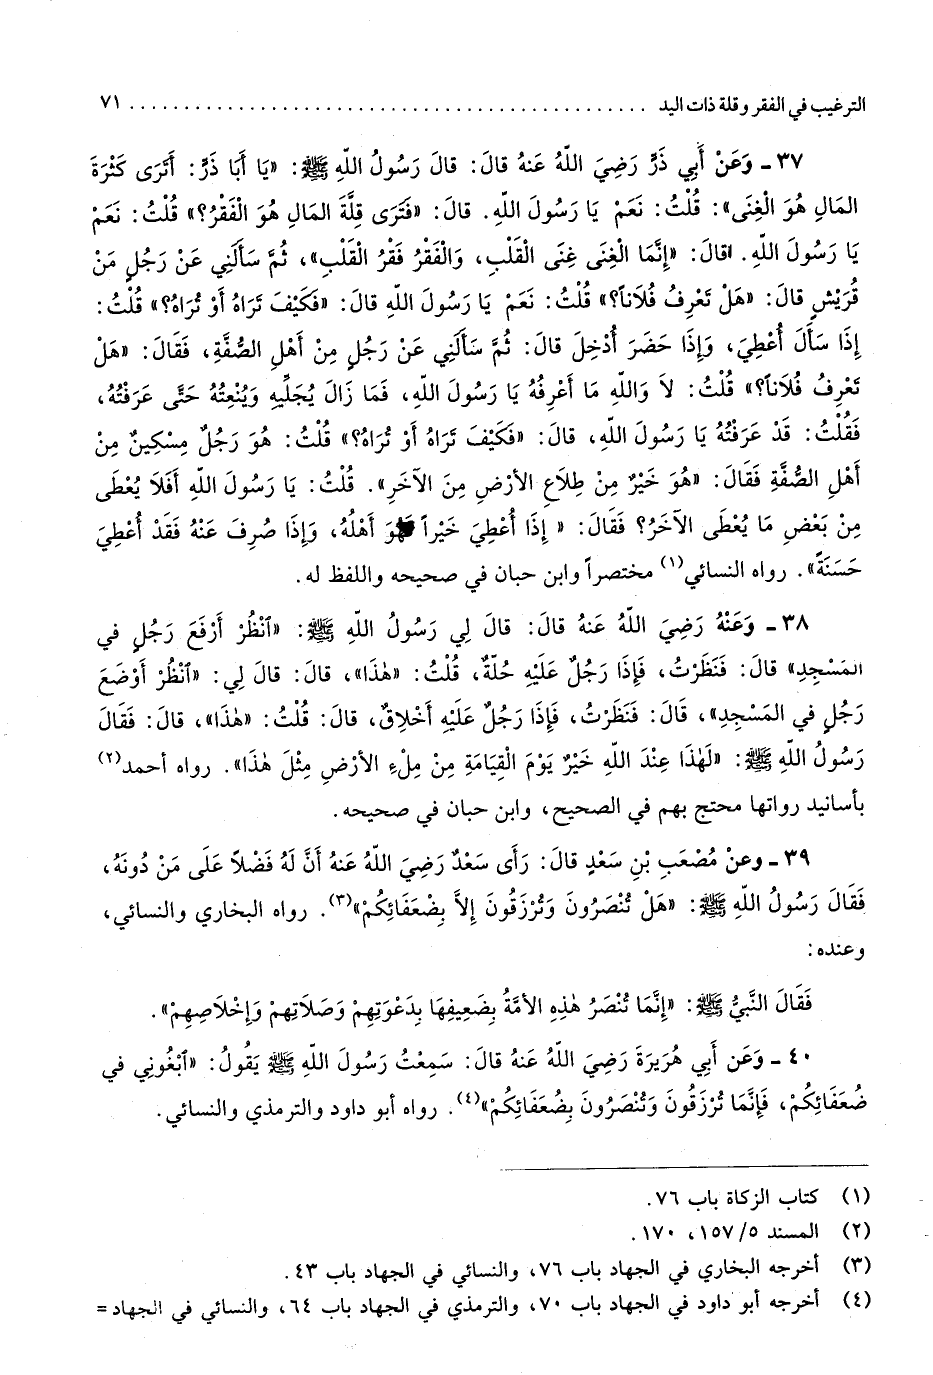 الترغيب في الفقر وقلة ذات اليد ................................................ ٧١
٣٧ ـ وَعَنْ أَبِي ذَرٍّ رَضِيَ اللّهُ عَنهُ قالَ: قالَ رَسُولُ اللّهِ ﷺ: «يا أَبَا ذَرٍّ: أَتَرَى كَثْرَةَ
المَالِ هُوَ الْغِنَى»: قُلْتُ: نَعَمْ يا رَسُولَ اللّهِ. قالَ: «فَتَرَى قِلَّةَ المَالِ هُوَ الْفَقْرُ؟» قُلْتُ: نَعَمْ
يا رَسُولَ اللّهِ. قالَ: «إِنَّمَا الْغِنَى غِنَى الْقَلْبِ، وَالْفَقْرُ فَقْرُ القَلْبِ»، ثُمَّ سَأَلَنِي عَنْ رَجُلٍ مَنْ
قُرَيْشٍ قالَ: «هَلْ تَعْرِفُ فُلَاناً؟» قُلْتُ: نَعَمْ يا رَسُولَ اللّهِ قالَ: «فَكَيْفَ تَرَاهُ أَوْ تُرَاهُ؟» قُلْتُ:
إِذَا سَأَلَ أُعْطِيَ، وَإِذَا حَضَرَ أُدْخِلَ قالَ: ثُمَّ سَأَلَنِي عَنْ رَجُلٍ مِنْ أَهْلِ الصُّفَّةِ، فَقَالَ: «هَلْ
تَعْرِفُ فُلَاناً؟» قُلْتُ: لاَ وَاللّهِ مَا أَعْرِفُهُ يَا رَسُولَ اللّهِ، فَمَا زَالَ يُجَلِّيهِ وَيُنْعِتُهُ حَتَّى عَرَفْتُهُ،
فَقُلْتُ: قَدْ عَرَفْتُهُ يَا رَسُولَ اللّهِ، قالَ: «فَكَيْفَ تَرَاهُ أَوْ تُرَاهُ؟» قُلْتُ: هُوَ رَجُلٌ مِسْكِينٌ مِنْ
أَهْلِ الصُّفَّةِ فَقَالَ: «هُوَ خَيْرٌ مِنْ طِلَاعِ الأرْضِ مِنَ الآخَرِ». قُلْتُ: يا رَسُولَ اللّهِ أَفَلاَ يُعْطَى
مِنْ بَعْضِ مَا يُعْطَى الآخَرُ؟ فَقَالَ: « إِذَا أُعْطِيَ خَيْراً فَهُوَ أَهْلُهُ، وَإِذَا صُرِفَ عَنْهُ فَقَدْ أُعْطِيَ
حَسَنَةً». رواه النسائي(١) مختصراً وابن حبان في صحيحه واللفظ له.
٣٨ ـ وَعَنْهُ رَضِيَ اللّهُ عَنهُ قالَ: قالَ لِي رَسُولُ اللّهِ ﷺ: «ٱنْظُرْ أَرْفَعَ رَجُلٍ في
المَسْجِدِ» قالَ: فَنَظَرْتُ، فَإِذَا رَجُلٌ عَلَيْهِ حُلَّةٌ، قُلْتُ: «هٰذَا»، قالَ: قالَ لِي: «ٱنْظُرْ أَوْضَعَ
رَجُلٍ في المَسْجِدِ»، قَالَ: فَنَظَرْتُ، فَإِذَا رَجُلٌ عَلَيْهِ أَخْلَاقٌ، قالَ: قُلْتُ: «هٰذَا»، قالَ: فَقَالَ
رَسُولُ اللّهِ ﷺ: «لَهٰذَا عِنْدَ اللّهِ خَيْرٌ يَوْمَ الْقِيَامَةِ مِنْ مِلْءِ الأرْضِ مِثْلَ هٰذَا». رواه أحمد(٢)
بأسانيد رواتها محتج بهم في الصحيح، وابن حبان في صحيحه.
٣٩ ـ وعنْ مُصْعَبِ بْنِ سَعْدٍ قالَ: رَأَى سَعْدٌ رَضِيَ اللّهُ عَنهُ أَنَّ لَهُ فَضْلاً عَلَى مَنْ دُونَهُ،
فَقَالَ رَسُولُ اللّهِ ﷺ: «هَلْ تُنْصَرُونَ وَتُرْزَقُونَ إِلاَّ بِضُعَفَائِكُمْ»(٣). رواه البخاري والنسائي،
وعنده:
فَقَالَ النَّبِيُّ ﷺ: «إِنَّمَا تُنْصَرُ هٰذِهِ الأمَّةُ بِضَعِيفِهَا بِدَعْوَتِهِمْ وَصَلَاتِهِمْ وَإِخْلَاصِهِمْ».
٤٠ ـ وَعَن أَبِي هُرَيْرَةَ رَضِيَ اللّهُ عَنْهُ قالَ: سَمِعْتُ رَسُولَ اللّهِ ﷺ يَقُولُ: «ٱبْغُونِي في
ضُعَفَائِكُمْ، فَإِنَّمَا تُرْزَقُونَ وَتُنْصَرُونَ بِضُعَفَائِكُمْ»(٤). رواه أبو داود والترمذي والنسائي.
(١) كتاب الزكاة باب ٧٦.
(٢) المسند ١٥٧/٥، ١٧٠.
(٣) أخرجه البخاري في الجهاد باب ٧٦، والنسائي في الجهاد باب ٤٣.
(٤) أخرجه أبو داود في الجهاد باب ٧٠، والترمذي في الجهاد باب ٦٤، والنسائي في الجهاد =